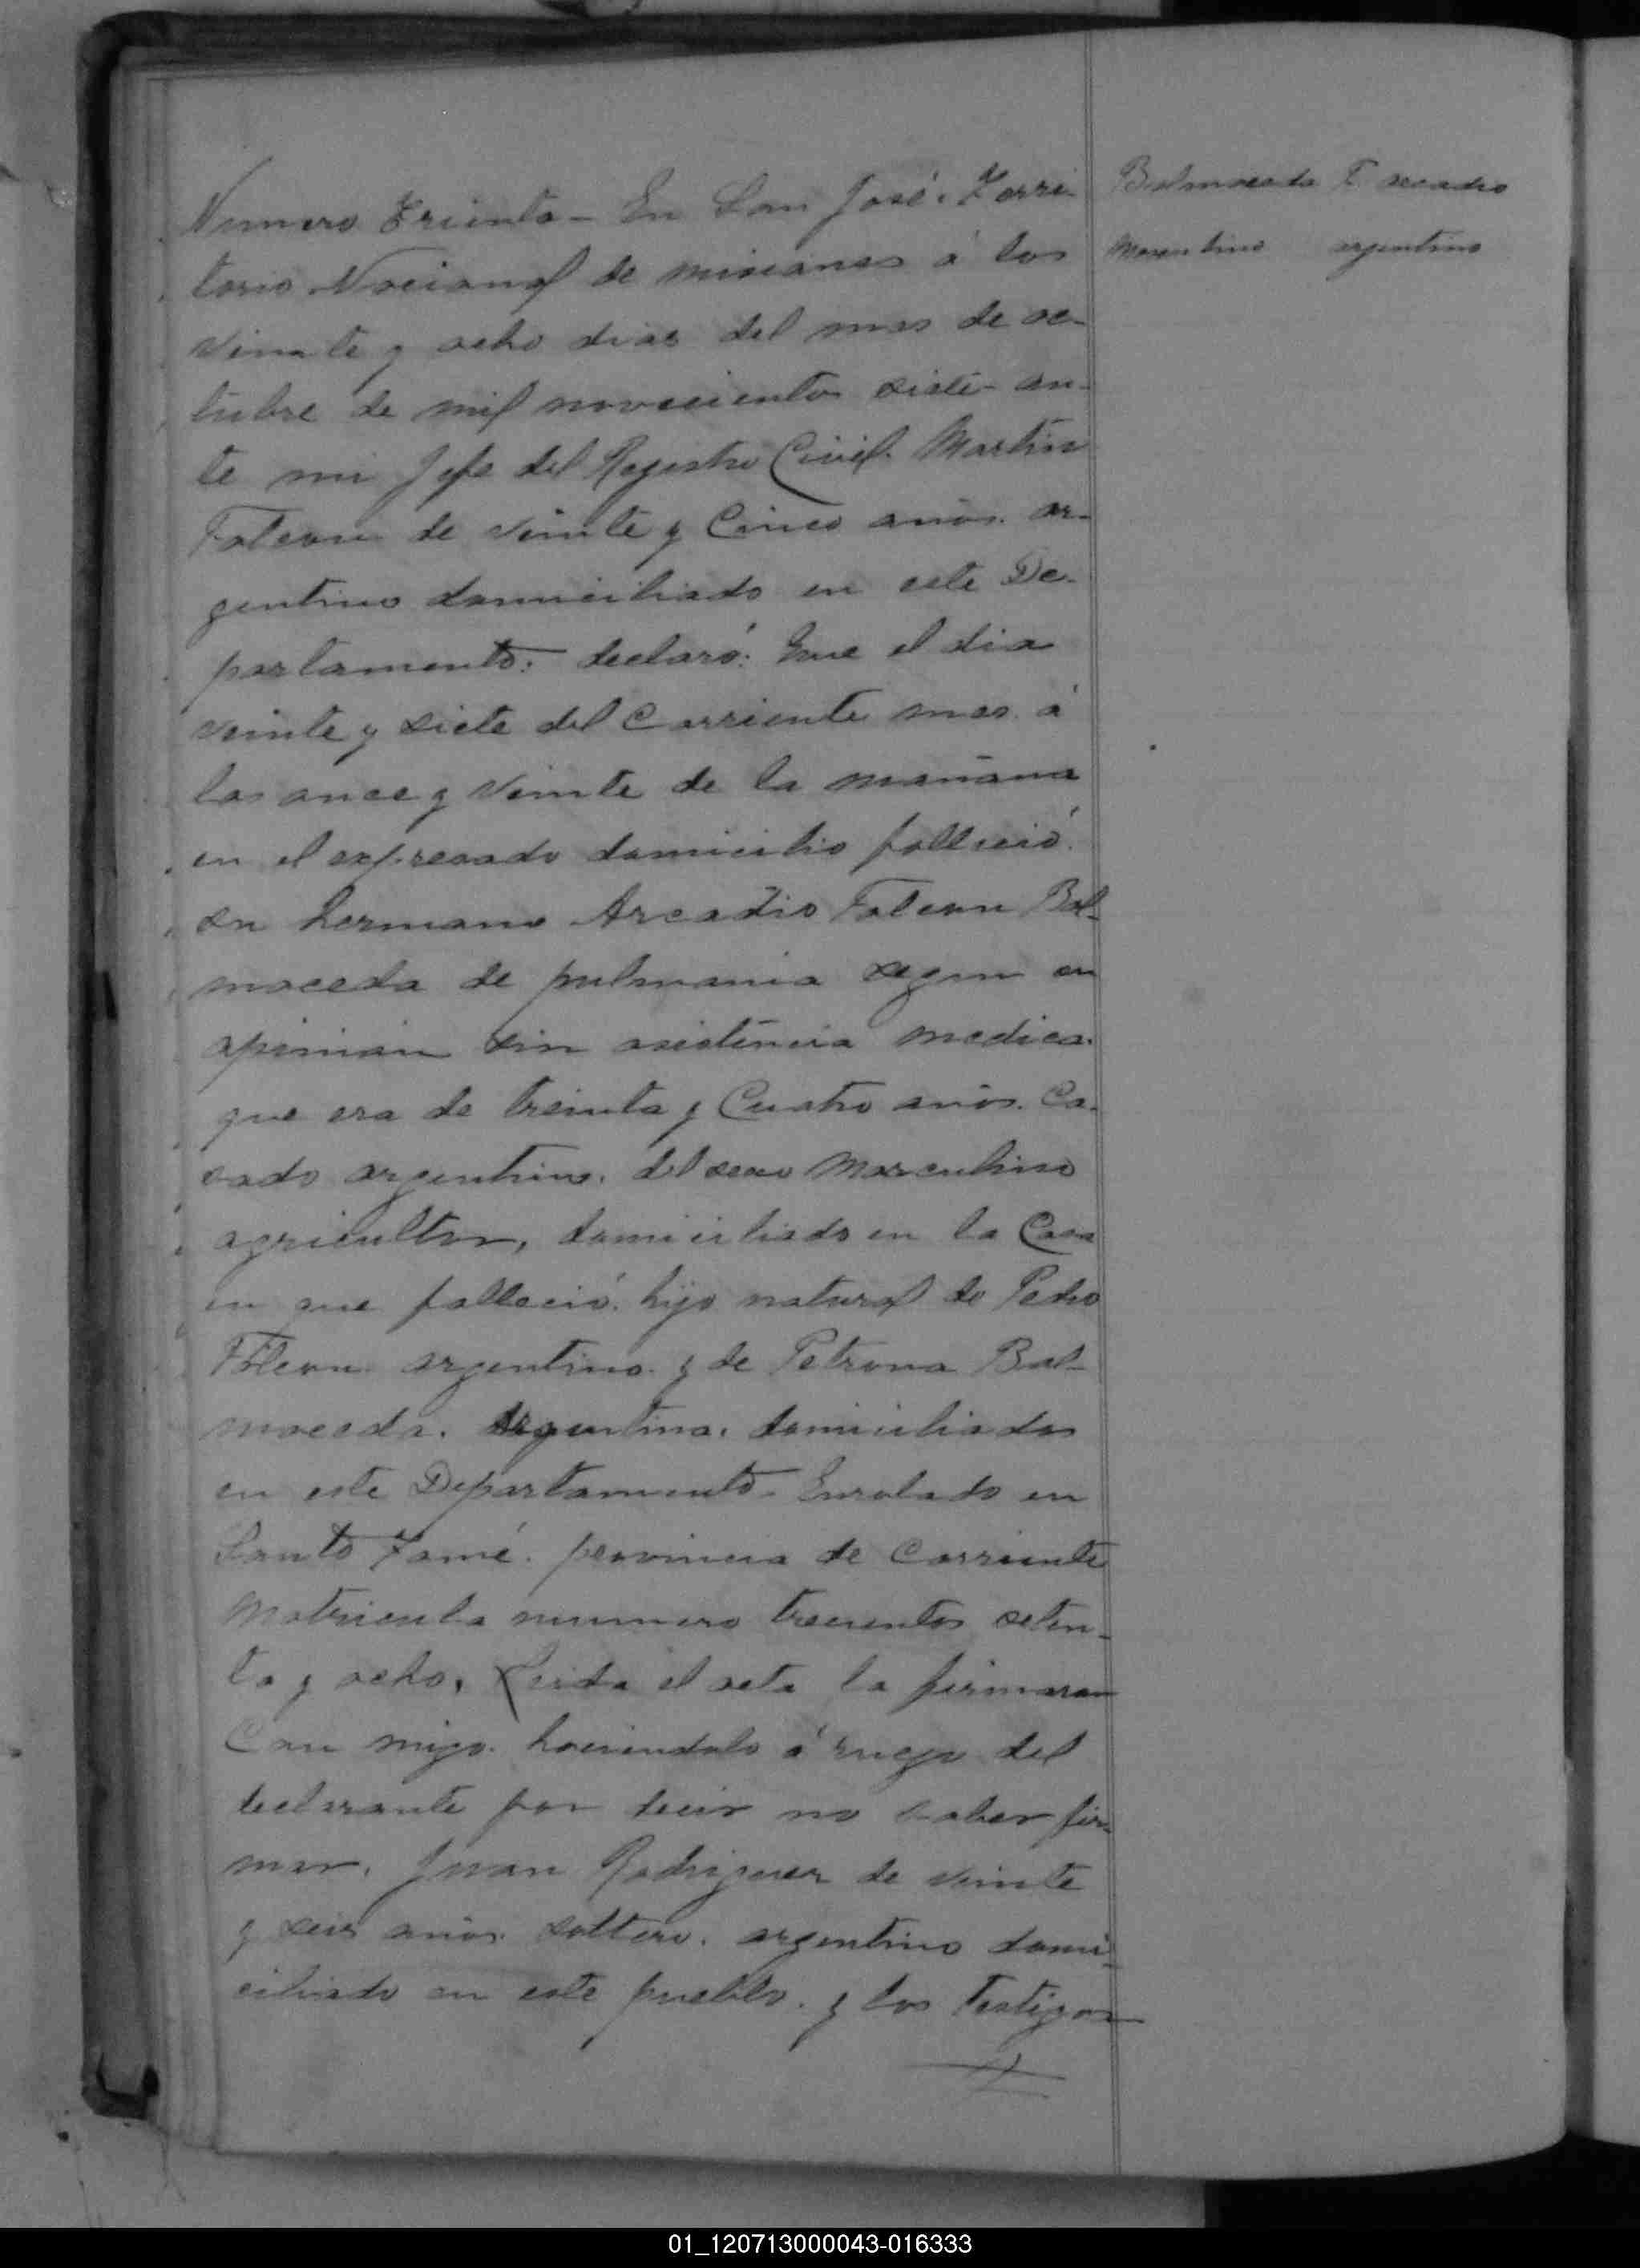 Numero Treinta - En San José. Terri-
torio Nacional de misiones á los
veinte y ocho dias del mes de oc-
tubre de mil novecientos siete - an-
te mi Jefe del Registro Civil. Martin
Falcon de veinte y Cinco años. ar-
gentino domiciliado en este De-
partamento: declaró: Que el dia
veinte y siete del Corriente mes. á
las once y veinte de la mañana
en el expresado domicilio falleció.
su hermano Arcadio Falcon Bal-
maceda de pulmonia segun su
opinion sin asistencia medica.
que era de treinta y Cuatro años. Ca-
sado argentino. del sexo Masculino
agricultor, domiciliado en la Casa
en que falleció. hijo natural de Pedro
Falcon argentino. y de Petrona Bal-
maceda. Argentina. domiciliados
en este Departamento - Enrolado en
Santo Tomé. provincia de Corriente
Matricula numero trecientos seten-
ta y ocho. Leida el acta la firmaron
Con migo. haciendolo á ruego del
declarante por decir no saber fir-
mar. Juan Rodriguez de veinte
y seis años. soltero. argentino domi-
ciliado en este pueblo. y los Testigos
Balmaceda F. Arcadio
Masculino argentino
01_120713000043-016333